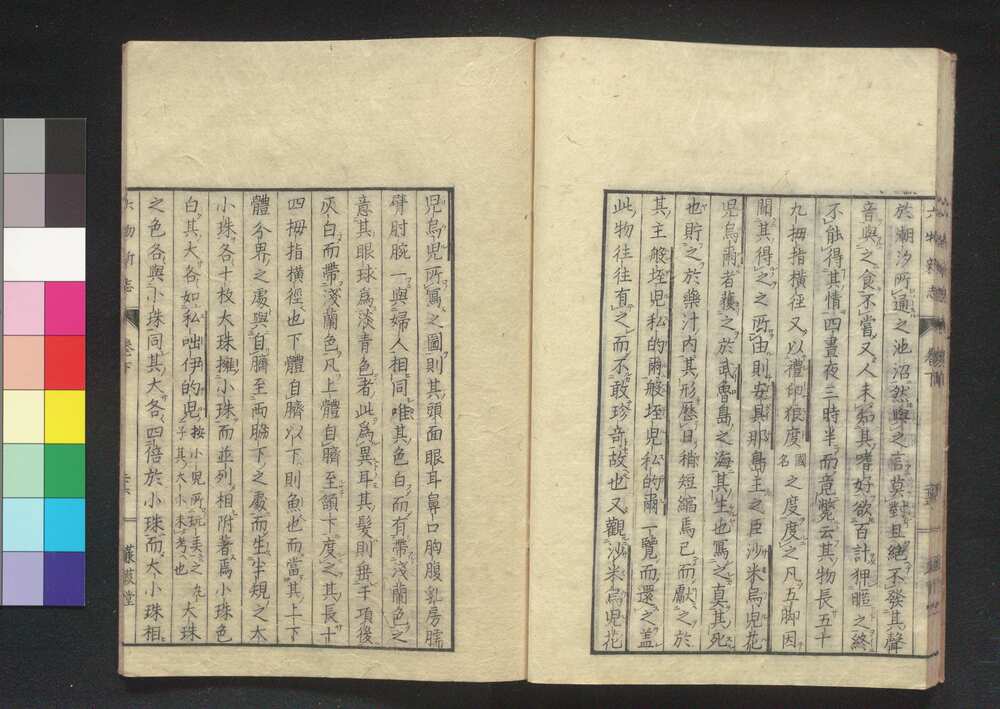 於潮汐所通之池沼然與之言莫對且絕不發其聲
音與之食不嘗又人未知其嗜好欲百計狎䐈之終
不能得其情四晝夜三時半而竟斃云其物長五十
九拇指橫徑又以禮印狼度國名之度度之凡五脚因
聞其得之之所由則安具那島主之臣沙米烏兒花
兒烏爾者獲之於武魯島之海其生也寫之真其死
也貯之於藥汁內其形歷日稍短縮焉已而獻之於
其主般垤兒私的爾般垤兒私的爾一覽而還之蓋
此物往往有之而不敢珍奇故也又觀沙米烏兒花
兒烏兒所寫之圖則其頭面眼耳鼻口胸腹乳房臑
臂肘腕一與婦人相同唯其色白而有帶淺蘭色之
意其眼球為淡青色者此為異耳其髮則垂于項後
灰白而帶淺蘭色凡上體自臍至頷下度之其長十
四拇指橫徑也下體自臍以下則魚也而當其上下
體分界之處與自臍至兩脇下之處而生半規之大
小珠各十枚大珠擁小珠而並列相附著焉小珠色
白其大各如私咄伊的兒按小兒所玩弄之丸子其大小未考也大珠
之色各與小珠同其大各四倍於小珠而大小珠相
六物新志
卷下
蒹葭堂